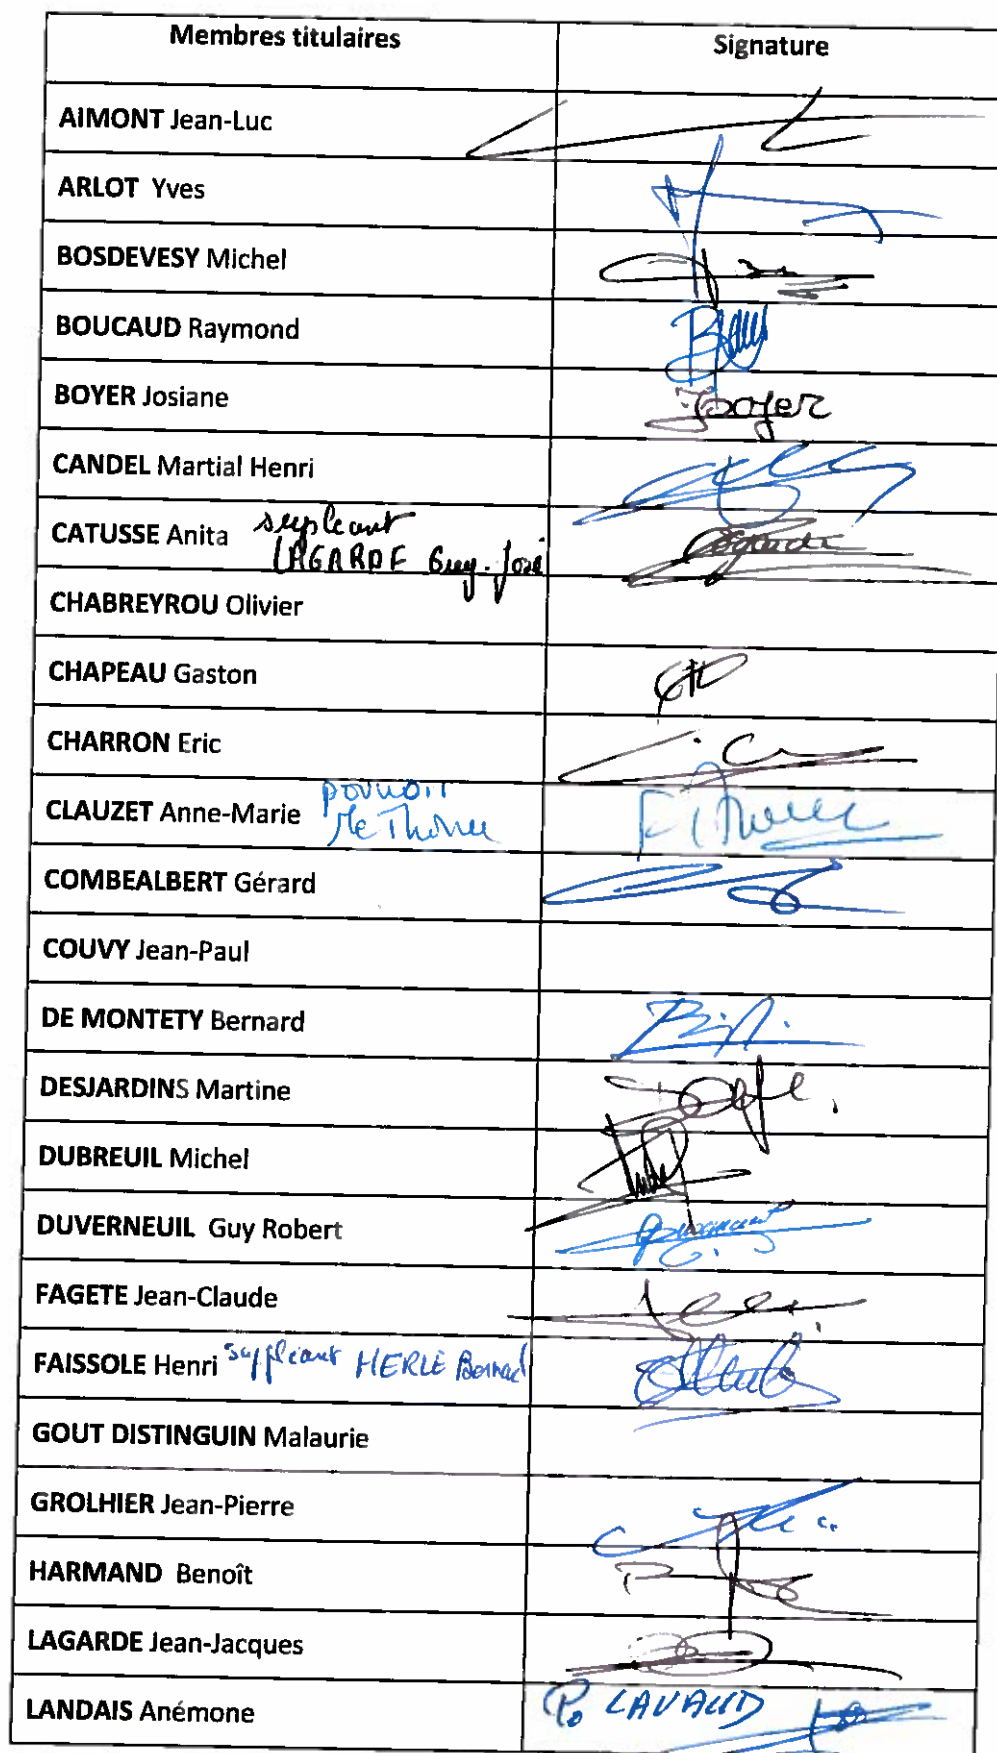 Membres titulaires Signature
AIMONT Jean-Luc
ARLOT Yves
BOSDEVESY Michel
BOUCAUD Raymond
BOYER Josiane Boyer
CANDEL Martial Henri
CATUSSE Anita supleant
LAGARDE Guy-José
CHABREYROU Olivier
CHAPEAU Gaston
CHARRON Eric
CLAUZET Anne-Marie pouvoir
COMBEALBERT Gérard
COUVY Jean-Paul
DE MONTETY Bernard
DESJARDINS Martine
DUBREUIL Michel
DUVERNEUIL Guy Robert
FAGETE Jean-Claude
FAISSOLE Henri suppléant HERLE Bernard
GOUT DISTINGUIN Malaurie
GROLHIER Jean-Pierre
HARMAND Benoît
LAGARDE Jean-Jacques
LANDAIS Anémone Po LAVAUD